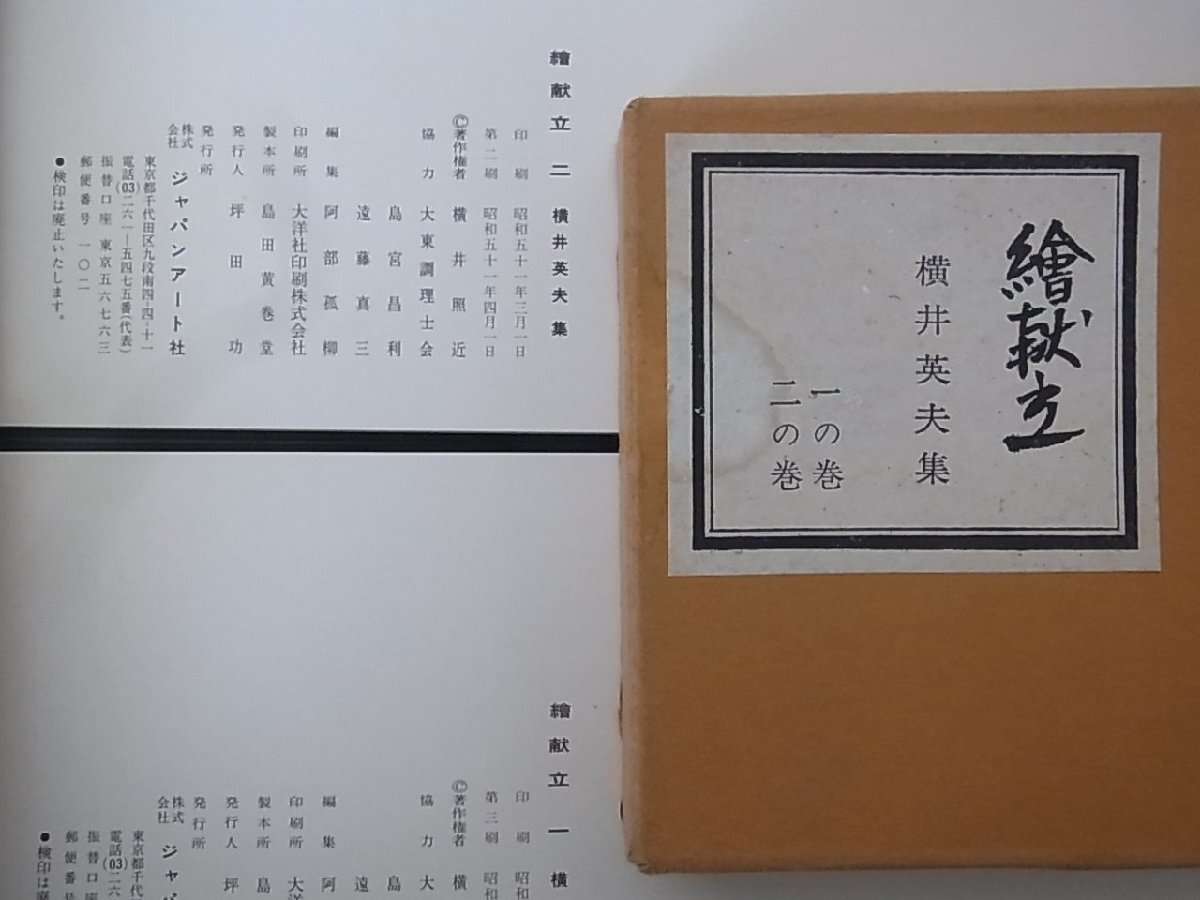 繪献立
横井英夫集
一の巻
二の巻
繪献立 二 横井英夫集
印刷 昭和五十一年三月一日
第二刷 昭和五十一年四月一日
©著作権者 横井照近
協力 大東調理士会
島宮昌利
遠藤真三
編集 阿部孤柳
印刷所 大洋社印刷株式会社
製本所 島田黄巻堂
発行人 坪田功
発行所
株式会社 ジャパンアート社
東京都千代田区九段南四-四-十一
電話(03)二六一―五四七五番(代表)
振替口座 東京五六七六三
郵便番号 一〇二
●検印は廃止いたします。
繪献立 一 横
印刷 昭
第三刷 昭和
©著作権者 横
協力 大
島
遠
編集 阿
印刷所 大洋
製本所 島
発行人 坪
発行所
株式会社 ジャパ
東京都千代
電話(03)二六
振替口座
郵便番号
●検印は廃